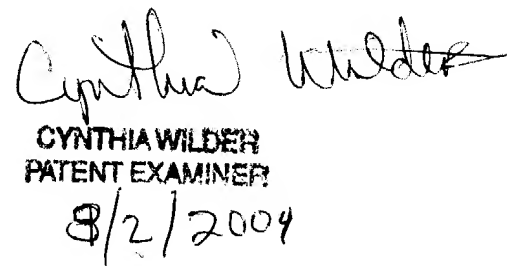 Cynthia Wilder
CYNTHIA WILDER
PATENT EXAMINER
8/2/2004